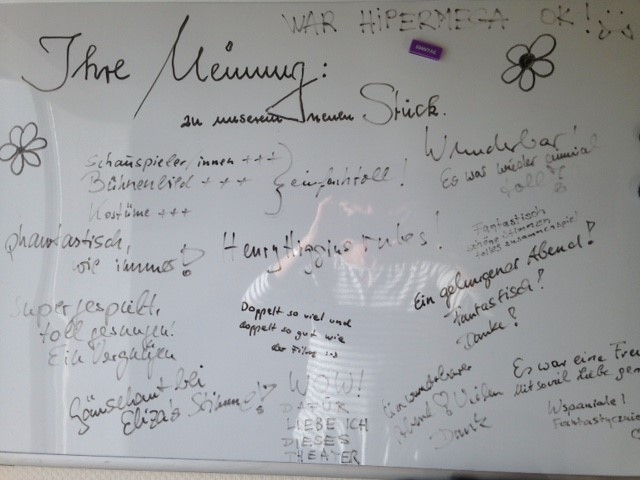 WAR HIPERMEGA OK!
Ihre Meinung:
zu unserem neuen Stück.
Schauspieler/innen +++
Bühnenbild +++
Kostüme +++
einfach toll!
Wunderbar!
Es war wieder einmal
toll!
phantastisch,
wie immer!
Henry Higgins rules!
Fantastisch
schöne Stimmen
tolles zusammenspiel
Ein gelungener Abend!
Fantastisch!
Danke!
Super gespielt,
toll gesungen!
Ein Vergnügen
Doppelt so viel und
doppelt so gut wie
der Film
Gänsehaut bei
Eliza's Stimme!
WOW!
DAFÜR
LIEBE ICH
DIESES
THEATER
wunderbarer
Abend Vielen
Dank
Es war eine Freu
Mit soviel Liebe gem
Wspaniale!
Fantastycznie